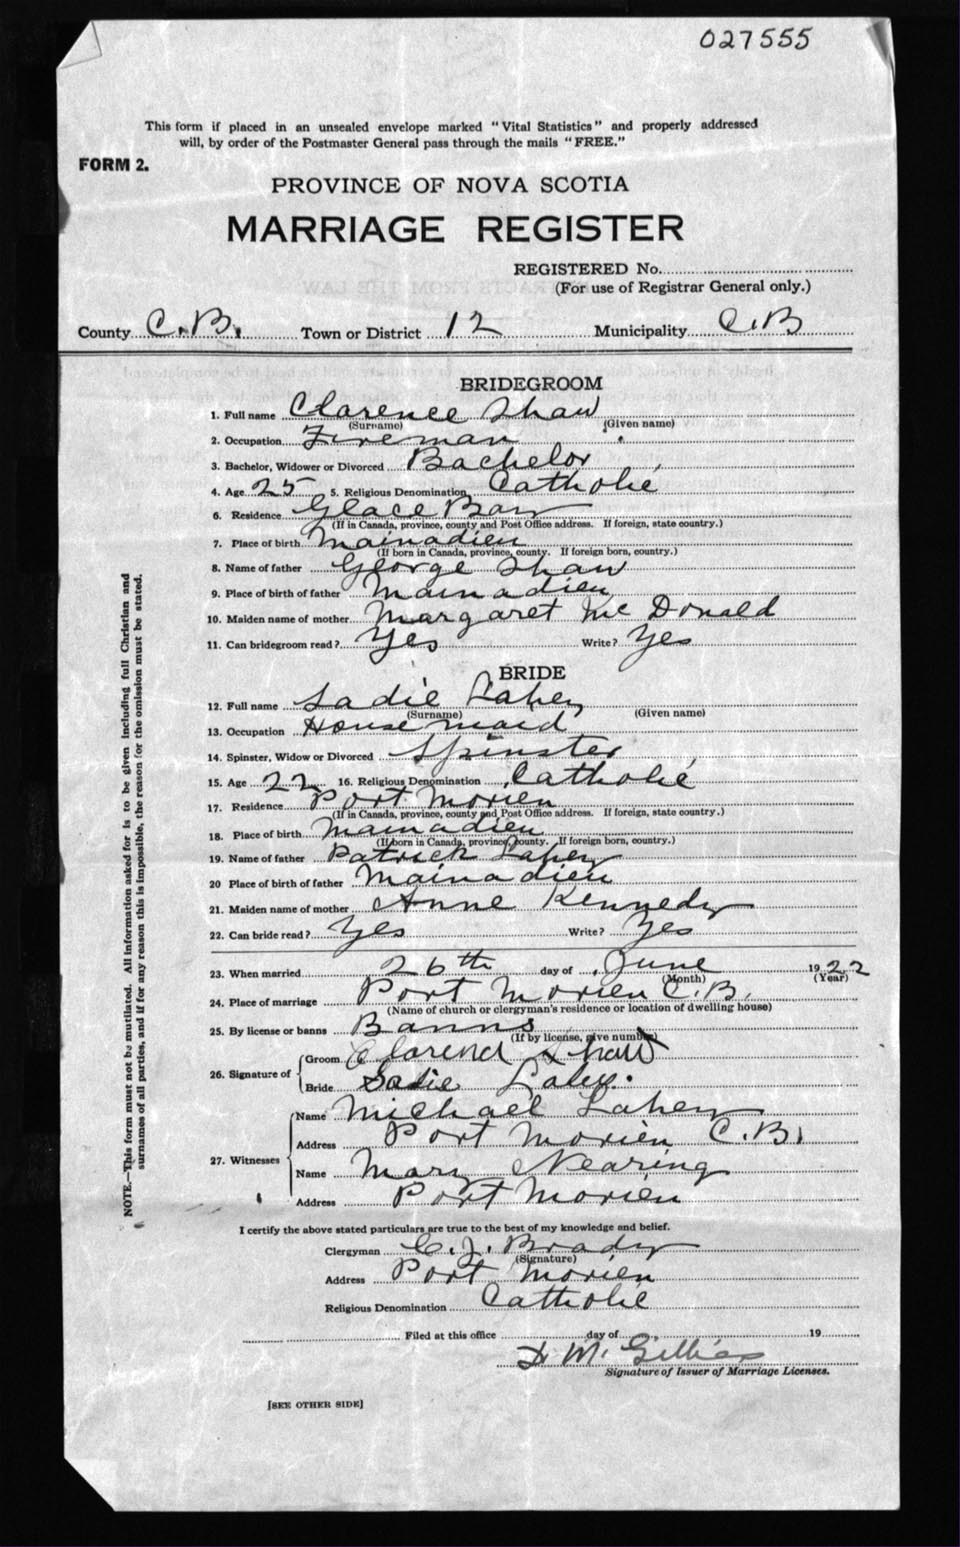 027555
This form if placed in an unsealed envelope marked "Vital Statistics" and properly addressed
will, by order of the Postmaster General pass through the mails "FREE."
FORM 2.
PROVINCE OF NOVA SCOTIA
MARRIAGE REGISTER
REGISTERED No.
(For use of Registrar General only.)
County C.B. Town or District 12 Municipality C.B
BRIDEGROOM
1. Full name Clarence Shaw
(Surname) (Given name)
2. Occupation Fireman
3. Bachelor, Widower or Divorced Bachelor
4. Age 25 5. Religious Denomination Catholic
6. Residence Glace Bay
(If in Canada, province, county and Post Office address. If foreign, state country.)
7. Place of birth Mainadieu
(If born in Canada, province, county. If foreign born, country.)
8. Name of father George Shaw
9. Place of birth of father Mainadieu
10. Maiden name of mother Margaret Mc Donald
11. Can bridegroom read? Yes Write? Yes
BRIDE
12. Full name Sadie Lahey
(Surname) (Given name)
13. Occupation House maid
14. Spinster, Widow or Divorced Spinster
15. Age 22 16. Religious Denomination Catholic
17. Residence Port Morien
(If in Canada, province, county and Post Office address. If foreign, state country.)
18. Place of birth Mainadieu
(If born in Canada, province, county. If foreign born, country.)
19. Name of father Patrick Lahey
20 Place of birth of father Mainadieu
21. Maiden name of mother Anne Kennedy
22. Can bride read? Yes Write? Yes
23. When married 26th day of June 1922
(Month) (Year)
24. Place of marriage Port Morien C.B.
(Name of church or clergyman's residence or location of dwelling house)
25. By license or banns Banns
(If by license, give number)
26. Signature of Groom Clarence Shaw
Bride Sadie Lahey.
27. Witnesses Name Michael Lahey
Address Port Morien C.B.
Name Mary Nearing
Address Port Morien
NOTE.—This form must not be mutilated. All information asked for is to be given including full Christian and
surnames of all parties, and if for any reason this is impossible, the reason for the omission must be stated.
I certify the above stated particulars are true to the best of my knowledge and belief.
Clergyman C. J. Brady
(Signature)
Address Port Morien
Religious Denomination Catholic
Filed at this office day of 19
M. Gillies
Signature of Issuer of Marriage Licenses.
[SEE OTHER SIDE]